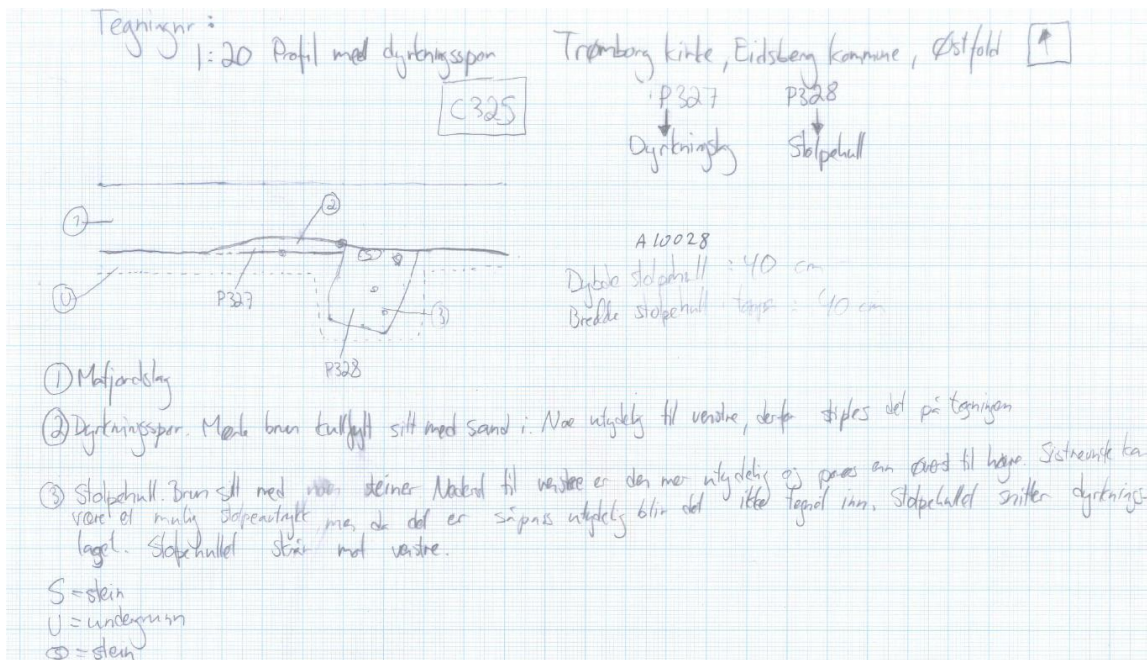 Tegningnr :
1:20 Profil med dyrkningsspor
Trømborg kirke, Eidsberg kommune, Østfold
C325
P327 P328
Dyrkningslag Stolpehull
1
2
A10028
Dybde stolpehull : 40 cm
Bredde stolpehull : 40 cm
U
P327
3
P328
S
1 Matjordslag
2 Dyrkningsspor. Mørk brun kullfylt silt med sand i. Noe utydelig til venstre, derfor stiples det på tegningen
3 Stolpehull. Brun silt med steiner Nederst til venstre er den mer utydelig og enn øverst til høyre. Sistnevnte
være et mulig stolpeavtrykk men da det er såpass utydelig blir det ikke tegnet inn. Stolpehullet snitter dyrknings-
laget. Stolpehullet mot venstre.
S = stein
U = undergrunn
S = stein